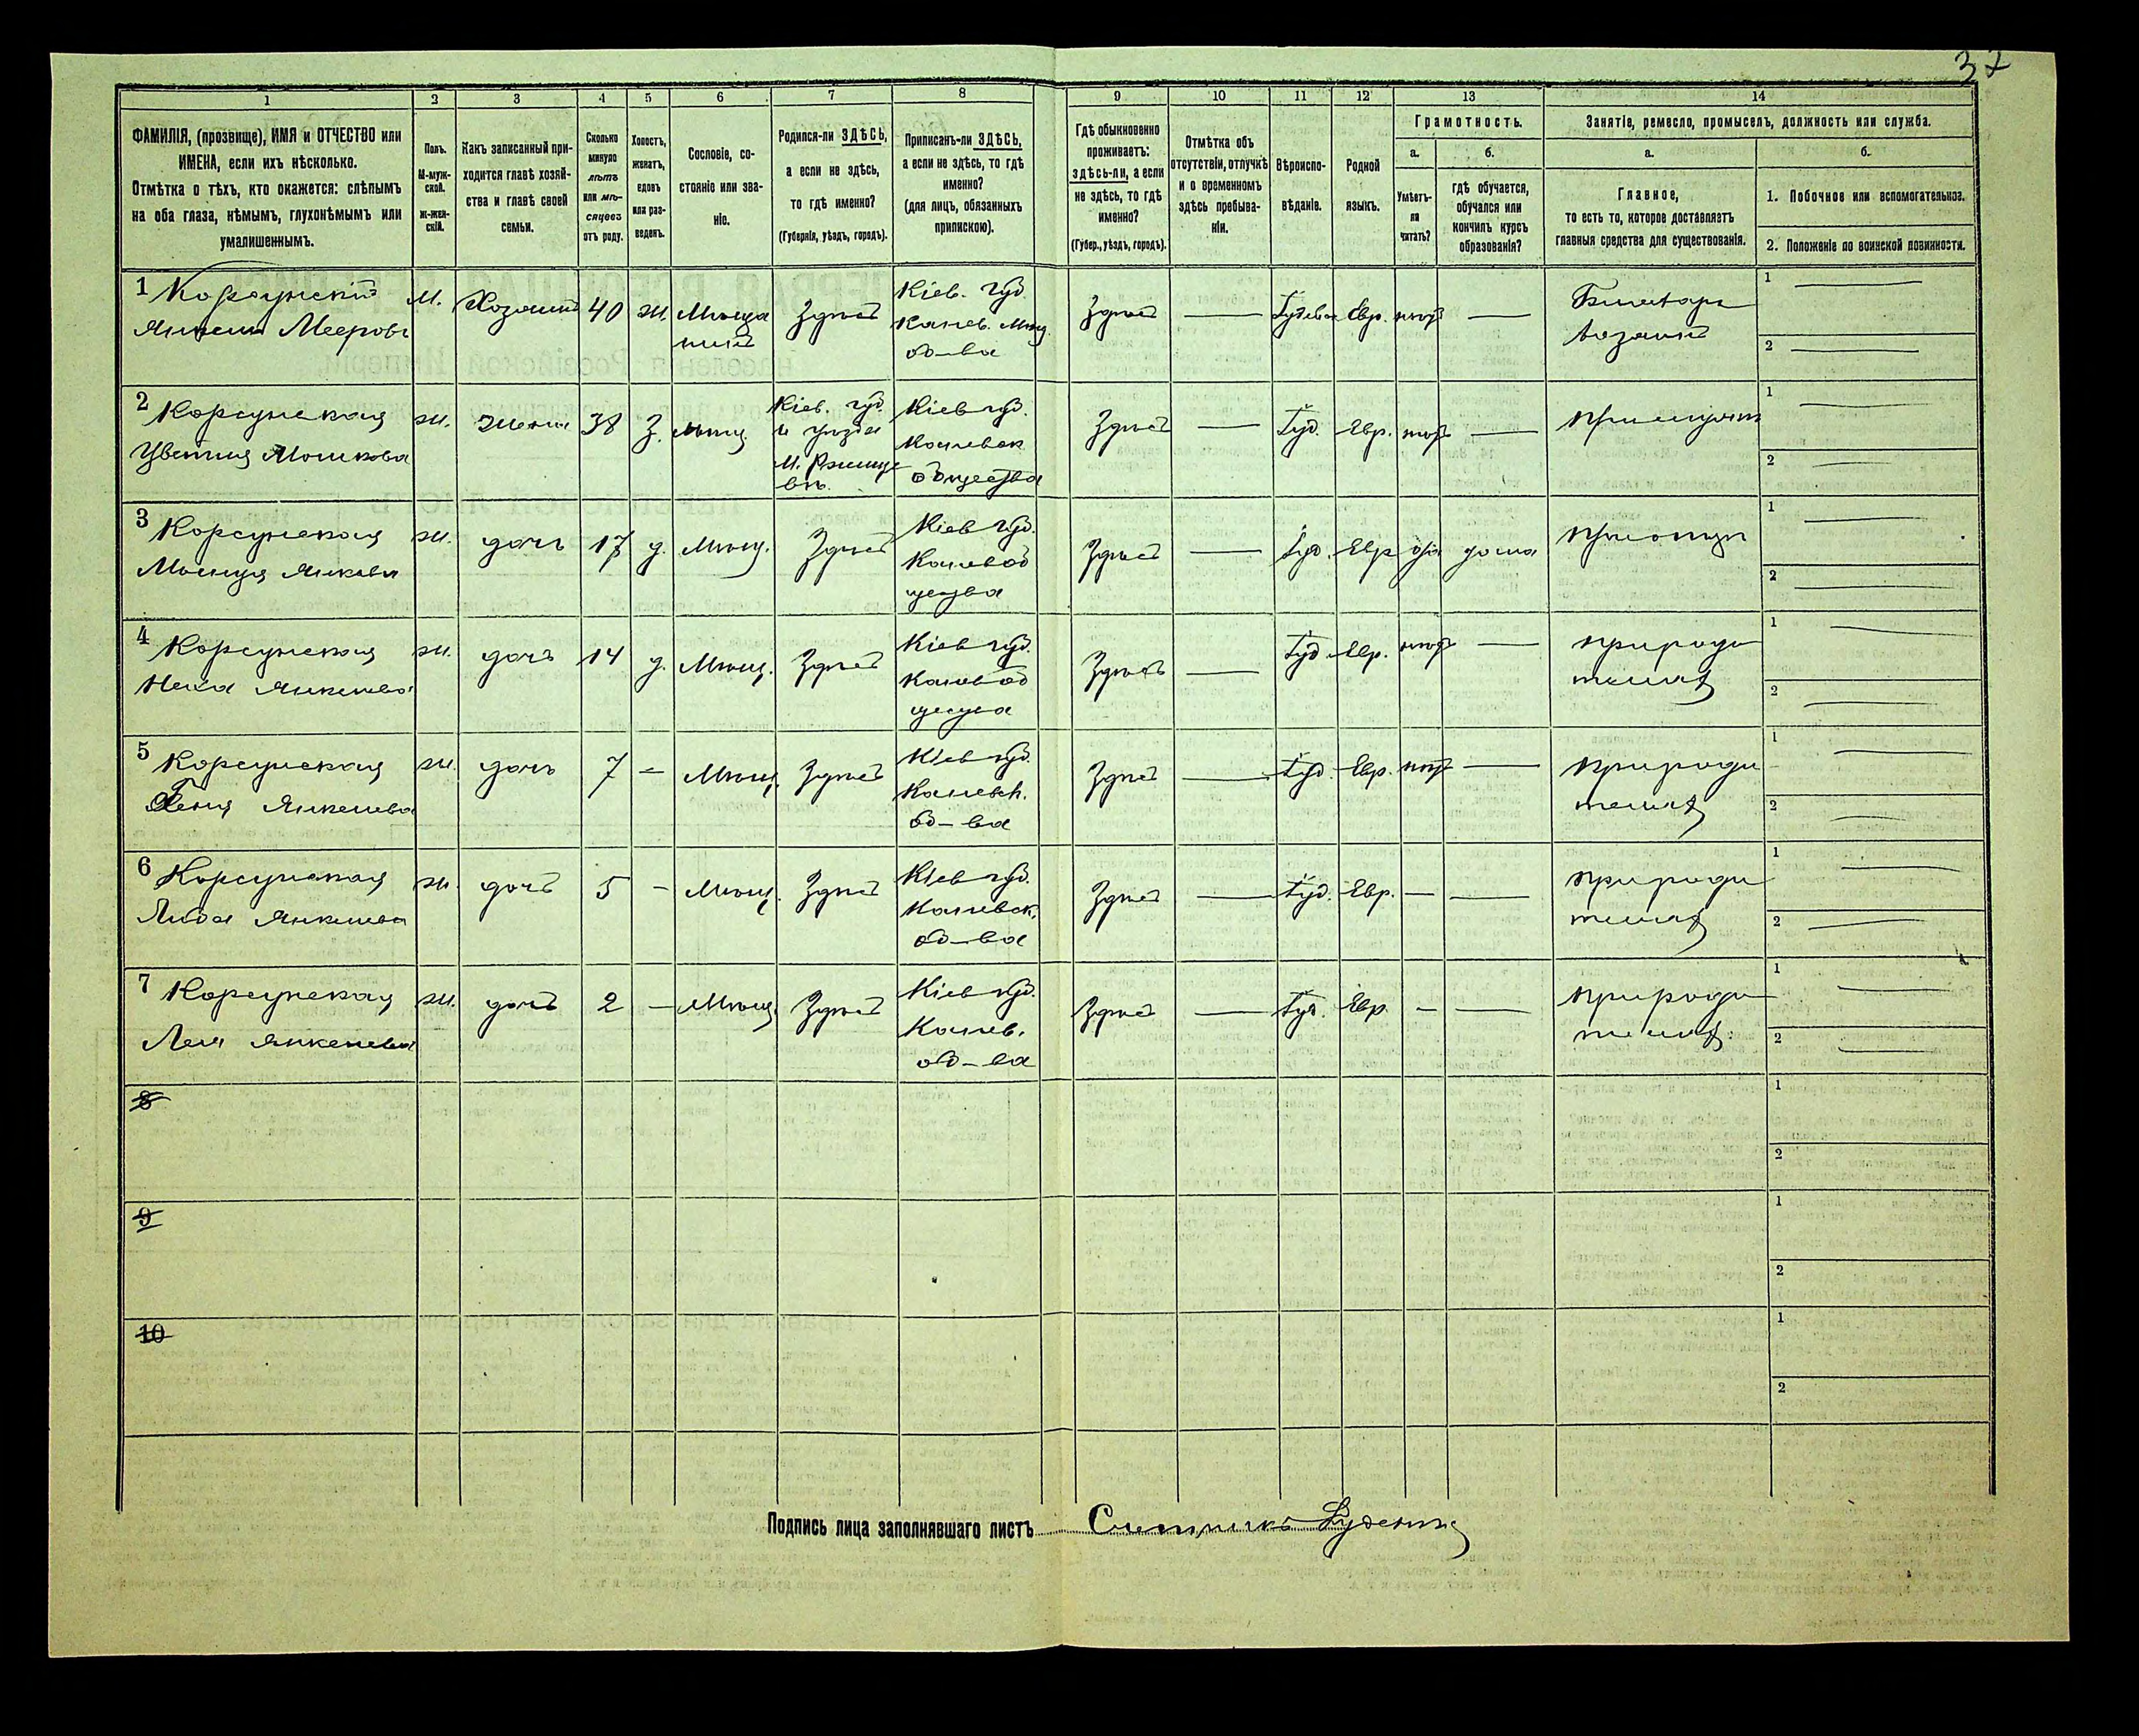 37
1 2 3 4 5 6 7 8 9 10 11 12 13 14
ФАМИЛІЯ, (прозвище), ИМЯ и ОТЧЕСТВО или
ИМЕНА, если ихъ нѣсколько.
Отмѣтка о тѣхъ, кто окажется: слѣпымъ
на оба глаза, нѣмымъ, глухонѣмымъ или
умалишеннымъ.
Полъ.
М-муж-
ской.
ж-жен-
скій.
Какъ записанный при-
ходится главѣ хозяй-
ства и главѣ своей
семьи.
Сколько
минуло
лѣтъ
или мѣ-
сяцевъ
отъ роду.
Холостъ,
женатъ,
вдовъ
или раз-
веденъ.
Сословіе, со-
стояніе или зва-
ніе.
Родился-ли ЗДѢСЬ,
а если не здѣсь,
то гдѣ именно?
(Губернія, уѣздъ, городъ).
Приписанъ-ли ЗДѢСЬ,
а если не здѣсь, то гдѣ
именно?
(для лицъ, обязанныхъ
припискою).
Гдѣ обыкновенно
проживаетъ:
здѣсь-ли, а если
не здѣсь, то гдѣ
именно?
(Губер., уѣздъ, городъ).
Отмѣтка объ
отсутствіи, отлучкѣ
и о временномъ
здѣсь пребыва-
ніи.
Вѣроиспо-
вѣданіе.
Родной
языкъ.
Грамотность.
а.
Умѣетъ-
ли
читать?
б.
гдѣ обучается,
обучался или
кончилъ курсъ
образованія?
Занятіе, ремесло, промыселъ, должность или служба.
а.
Главное,
то есть то, которое доставляетъ
главныя средства для существованія.
б.
1. Побочное или вспомогательное.
2. Положеніе по воинской повинности.
1 Корсунскій М. Хозяинъ 40 ж. Мѣща Здѣсь Кіев. губ. Здѣсь — Іудейск Евр. нѣтъ — 1 —
Янкель Мееровъ нинъ Канев. Мѣщ. 2 —
об-ва
2 Корсунская ж. жена 38 З. Мѣщ. Кіев. губ. Кіев губ. Здѣсь — Іуд. Евр. нѣтъ — При мужѣ 1 —
Цветня Мошкова и уѣзда Каневск 2 —
М. Ржище общества
въ.
3 Корсунская ж. дочь 17 д. Мѣщ. Здѣсь Кіев губ. Здѣсь — Іуд. Евр да дома При отцѣ 1 —
Янкелева Канев об 2 —
щества
4 Корсунская ж. дочь 14 д. Мѣщ. Здѣсь Кіев губ. Здѣсь — Іуд. Евр. нѣтъ — При роди 1 —
Янкелева Канев об теляхъ 2 —
щества
5 Корсунская ж. дочь 7 — Мѣщ. Здѣсь Кіев губ. Здѣсь — Іуд. Евр. нѣтъ — При роди 1 —
Геня Янкелева Каневск. теляхъ 2 —
об-ва
6 Корсунская ж. дочь 5 — Мѣщ. Здѣсь Кіев губ. Здѣсь — Іуд. Евр. — — При роди 1 —
Либа Янкелева Каневск. теляхъ 2 —
об-ва
7 Корсунская ж. дочь 2 — Мѣщ. Здѣсь Кіев губ. Здѣсь — Іуд. Евр. — — При роди 1 —
Лея Янкелева Канев. теляхъ 2 —
об-ва
8 1
2
9 1
2
10 1
2
Подпись лица заполнявшаго листъ